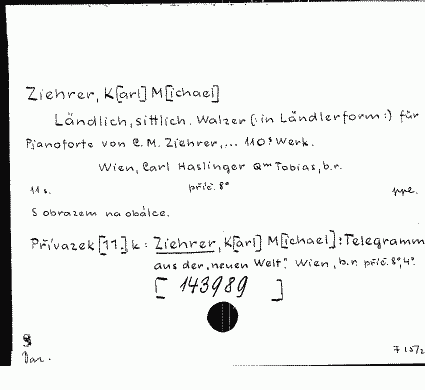 Ziehrer, K[arl] M[ichael]
Ländlich, sittlich. Walzer (: in Ländlerform :) für
Pianoforte von C. M. Ziehrer, ... 110s Werk.
Wien, Carl Haslinger Qm Tobias, b.r.
11 s. příč. 8° ppe.
S obrazem na obálce.
Přívazek [11.] k: Ziehrer, K[arl] M[ichael]: Telegramm
aus der „neuen Welt". Wien, b.r. příč. 8°, 4°.
[ 143989 ]